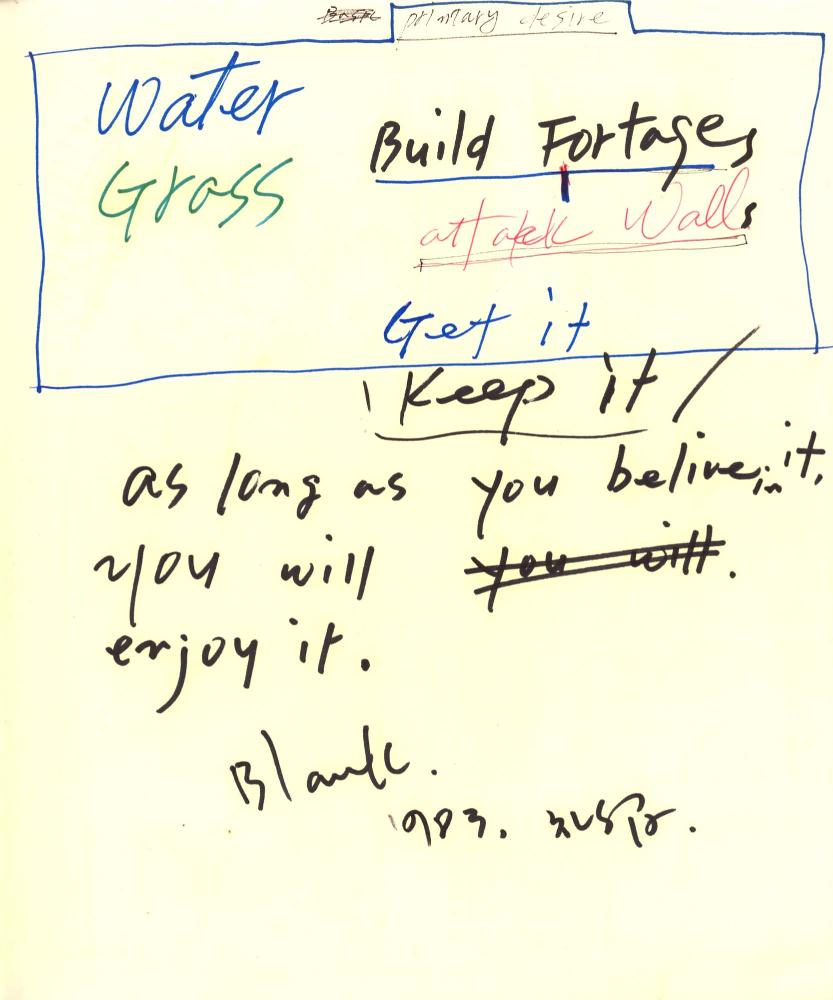 primary desire
Water
Build Fortages
Grass
attakk Walls
Get it
Keep it
as long as you belive in it,
you will you will.
enjoy it.
Blank.
1983.